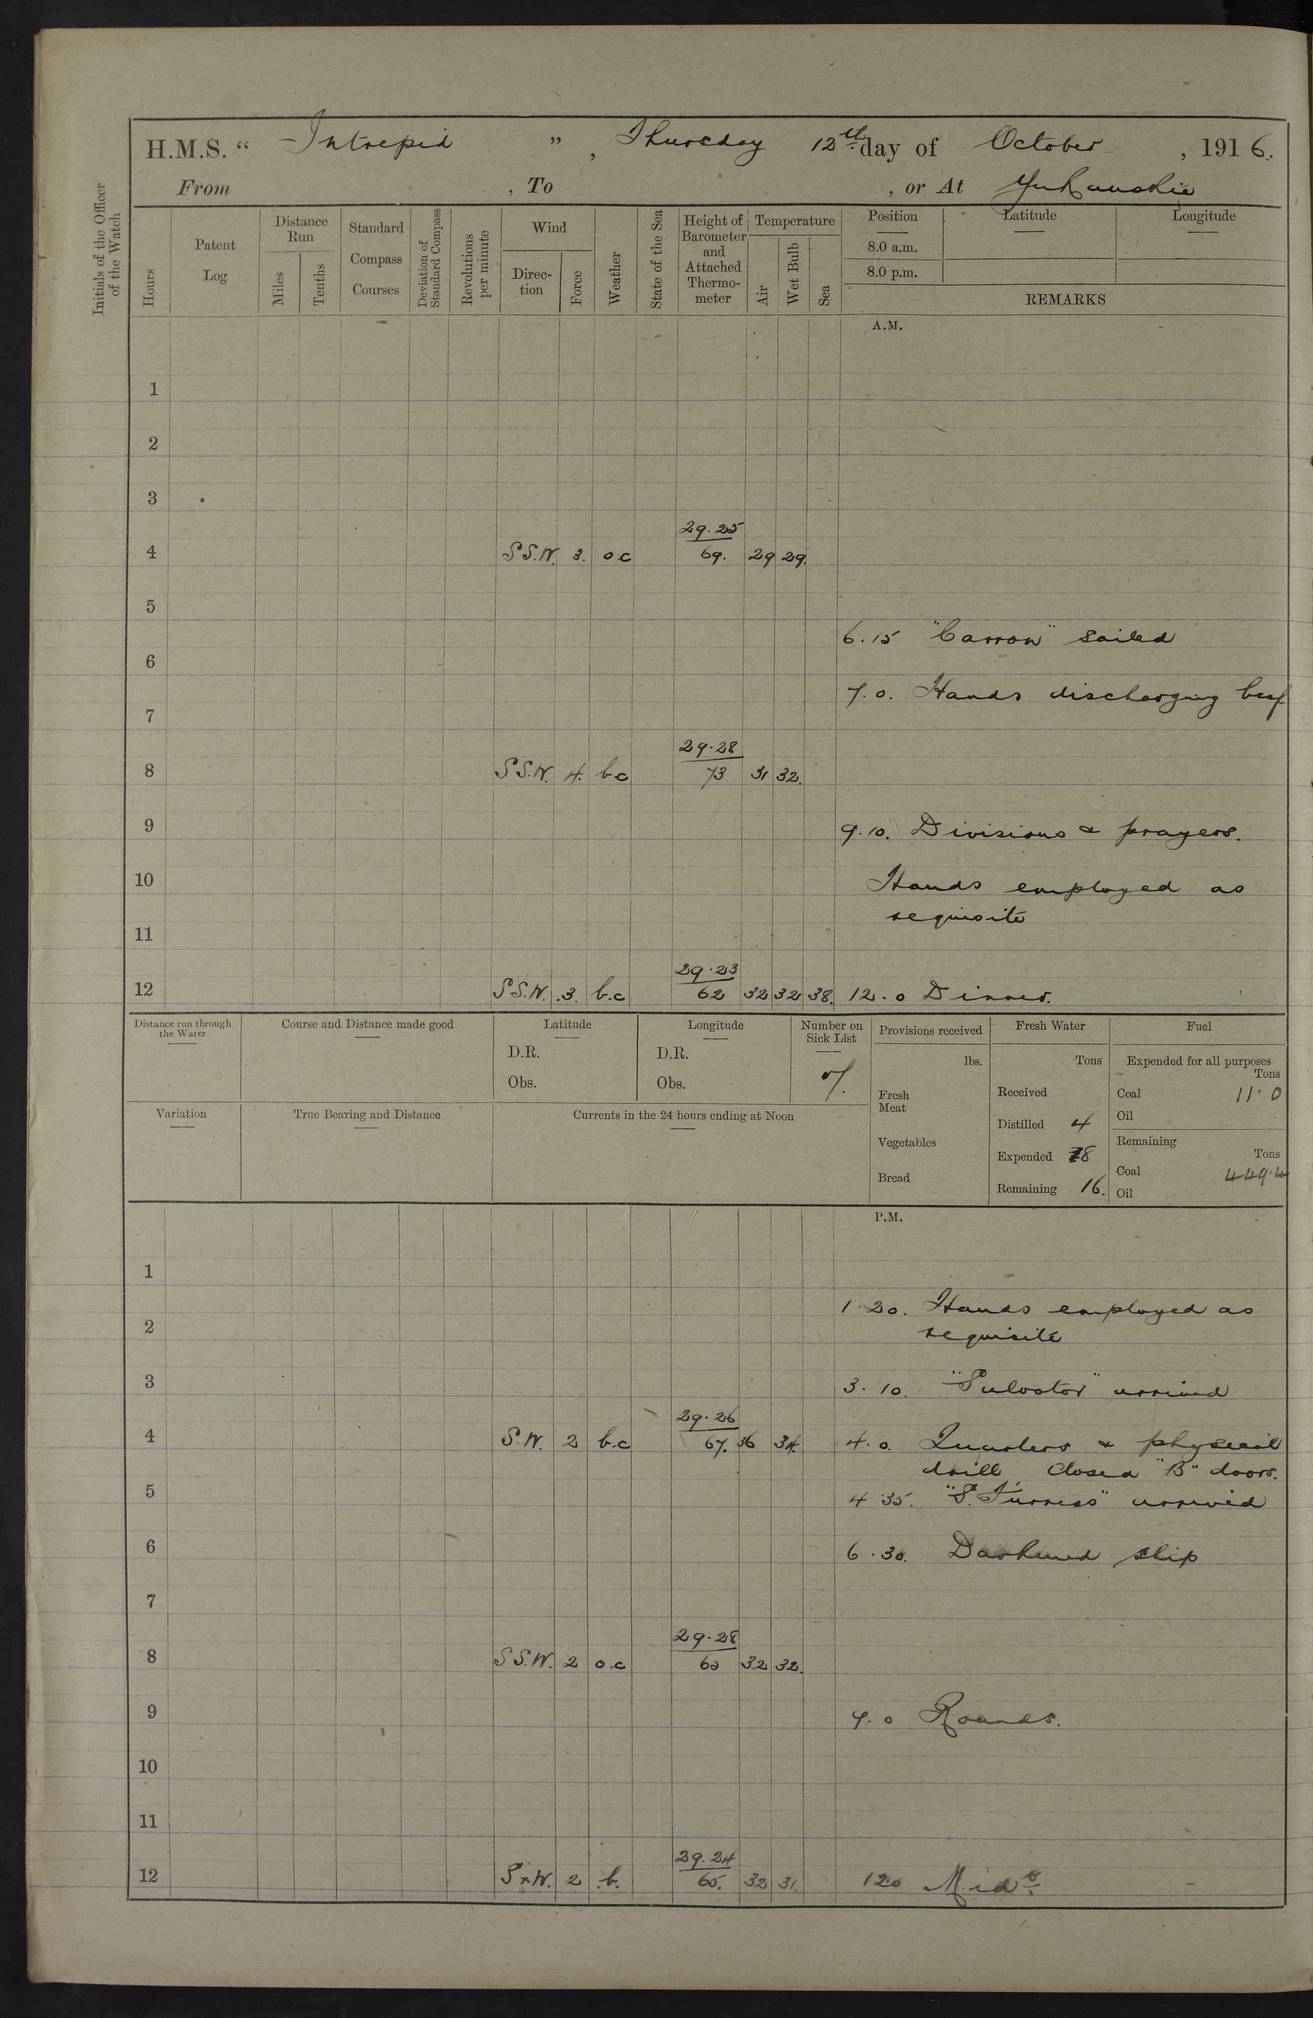 H.M.S. “ Intrepid ” , Thursday 12th day of October , 1916.
From , To , or At Yukanskie
Initials of the Officer of the Watch
Hours
Patent Log
Distance Run
Miles
Tenths
Standard Compass Courses
Deviation of Standard Compass
Revolutions per minute
Wind
Direction
Force
Weather
State of the Sea
Height of Barometer and Attached Thermometer
Temperature
Air
Wet Bulb
Sea
Position
Latitude
Longitude
8.0 a.m.
8.0 p.m.
REMARKS
A.M.
1
2
3
29.25
4 S S.W. 3. o c 69. 29 29.
5
6.15 "Carron" sailed
6
7.0. Hands discharging beef
7
29.28
8 S S.W. 4. b c 73 31 32.
9 9.10. Divisions & prayers.
10 Hands employed as
requisite
11
29.23
12 S S.W. 3. b.c 62 32 32 38. 12.0 Dinner.
Distance run through the Water
Course and Distance made good
Latitude
D.R.
Obs.
Longitude
D.R.
Obs.
Number on Sick List
7.
Variation
True Bearing and Distance
Currents in the 24 hours ending at Noon
Provisions received
lbs.
Fresh Meat
Vegetables
Bread
Fresh Water
Tons
Received
Distilled 4
Expended 8
Remaining 16.
Fuel
Expended for all purposes
Tons
Coal 11.0
Oil
Remaining
Tons
Coal 449.4
Oil
P.M.
1
1.20. Hands employed as
2 requisite
3 3.10. "Sulvator" arrived
29.26
4 S.W. 2 b.c 67. 36 34. 4.0. Quarters & physical
drill. Closed "B" doors.
5 4 35. "S. Furness" arrived
6 6.30. Darkened ship
7
29.28
8 S S.W. 2 o.c 32 32.
9 9.0 Rounds.
10
11
29.24
12 SxW. 2 b. 65. 32 31. 12.0 Midt.